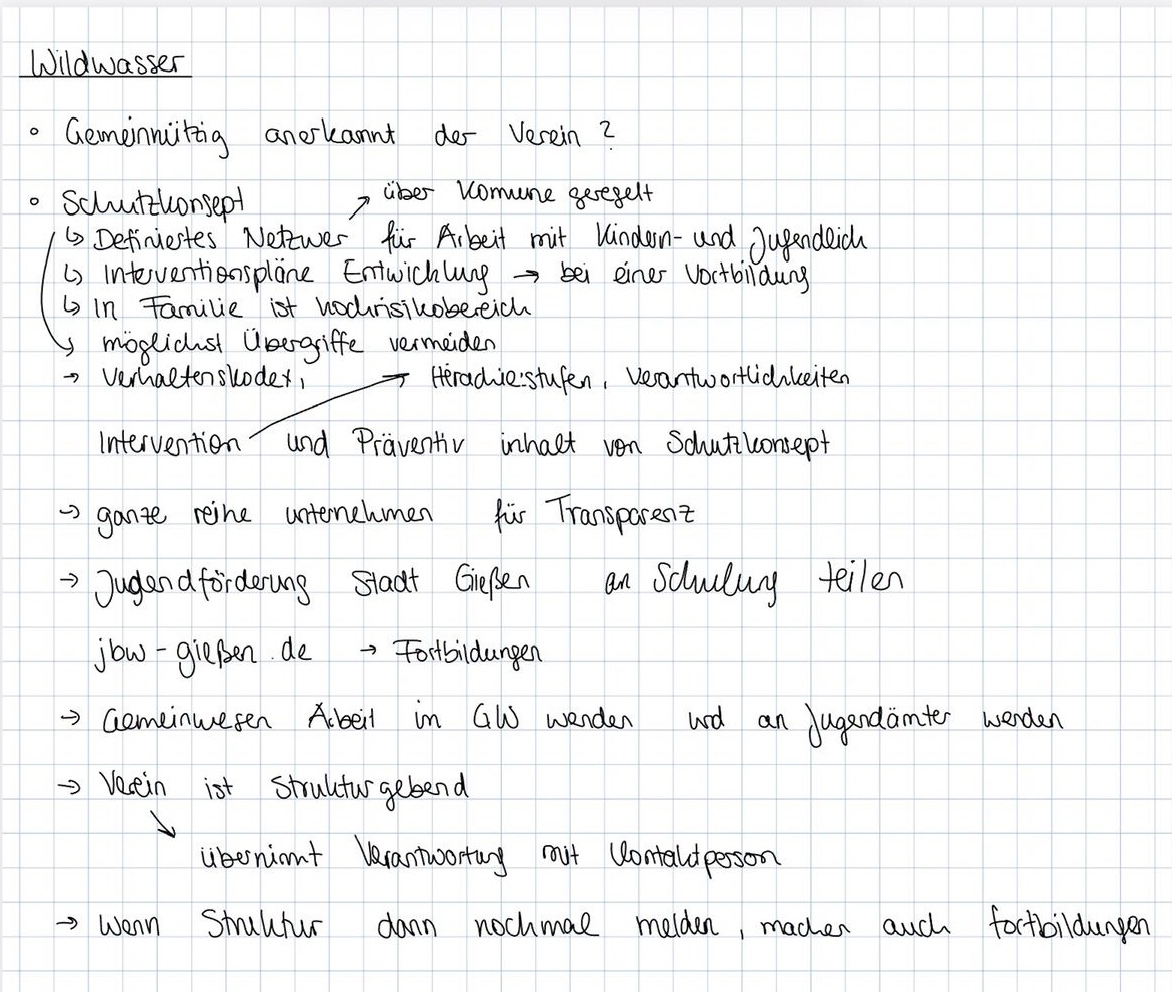 Wildwasser
° Gemeinnützig anerkannt der Verein ?
° Schutzkonsept ↗ über Komune geregelt
↳ Definiertes Netzwer für Arbeit mit Kindern- und Jugendlich
↳ Interventionspläne Entwicklung → bei einer Vortbildung
↳ In Familie ist hochrisikobereich
möglichst Übergriffe vermeiden
→ Verhaltenskodex, → Hirachiestufen, Verantwortlichkeiten
Intervention und Präventiv inhalt von Schutzkonsept
→ ganze reihe unternehmen für Transparenz
→ Jugendförderung Stadt Gießen an Schulung teilen
jbw-gießen.de → Fortbildungen
→ Gemeinwesen Arbeit in GW wenden und an Jugendämter wenden
→ Verein ist Strukturgebend
↘ übernimmt Verantwortung mit Kontaktperson
→ Wenn Struktur dann nochmal melden, machen auch fortbildungen